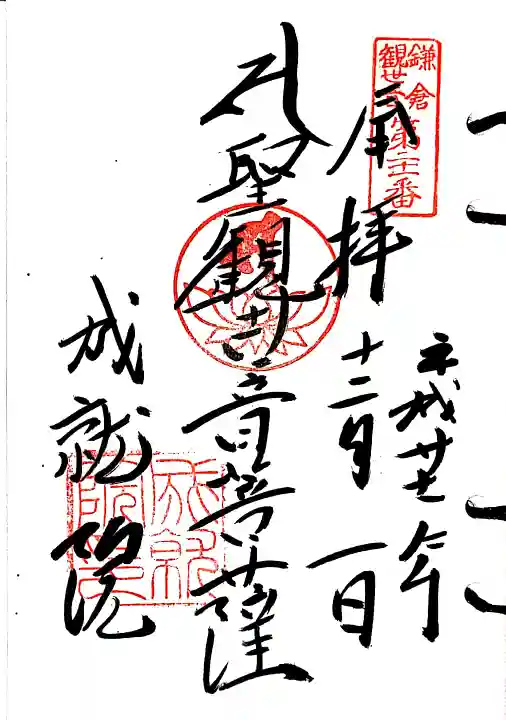 鎌倉
観世音第二十一番
奉拝
平成廿七年
十二月一日
聖観世音菩薩
成就院
成就